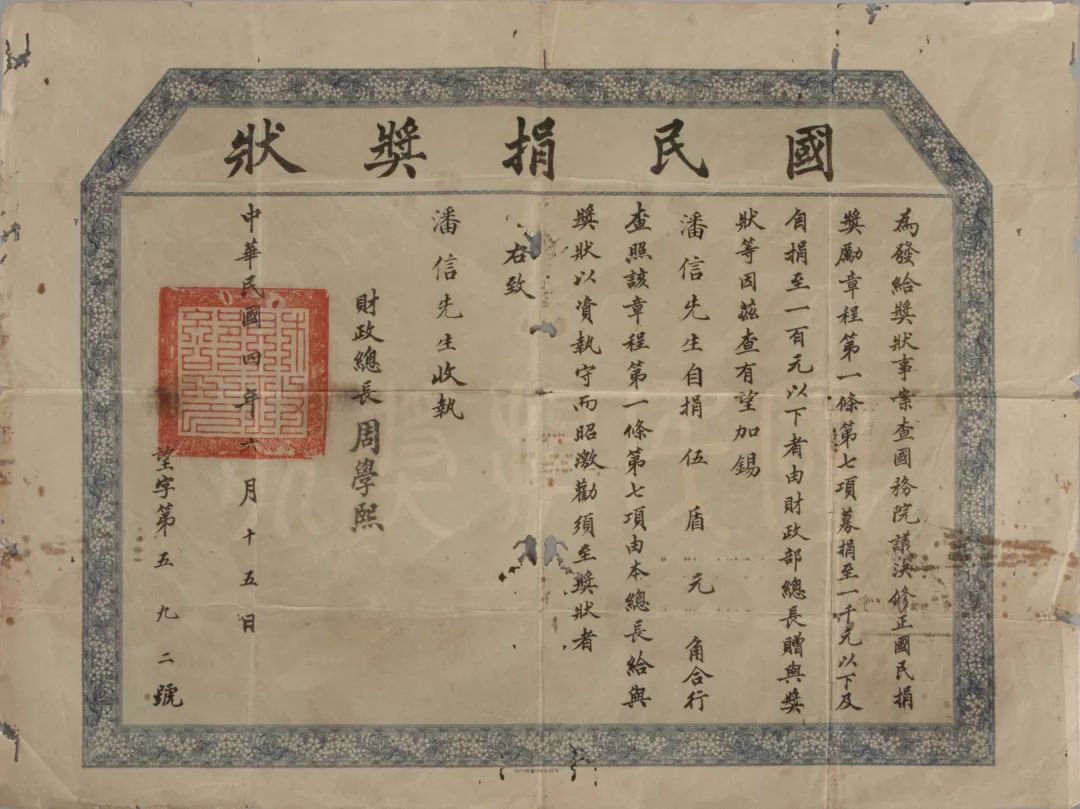 國民捐獎狀
為發給獎狀事案查國務院議決修正國民捐
獎勵章程第一條第七項募捐至一千元以下及
自捐至一百元以下者由財政部總長贈與獎
狀等因茲查有望加錫
潘信先生自捐伍盾元角合行
查照該章程第一條第七項由本總長給與
獎狀以資執守而昭激勸須至獎狀者
右致
潘信先生收執
財政總長周學熙
中華民國四年六月十五日
望字第五九二號